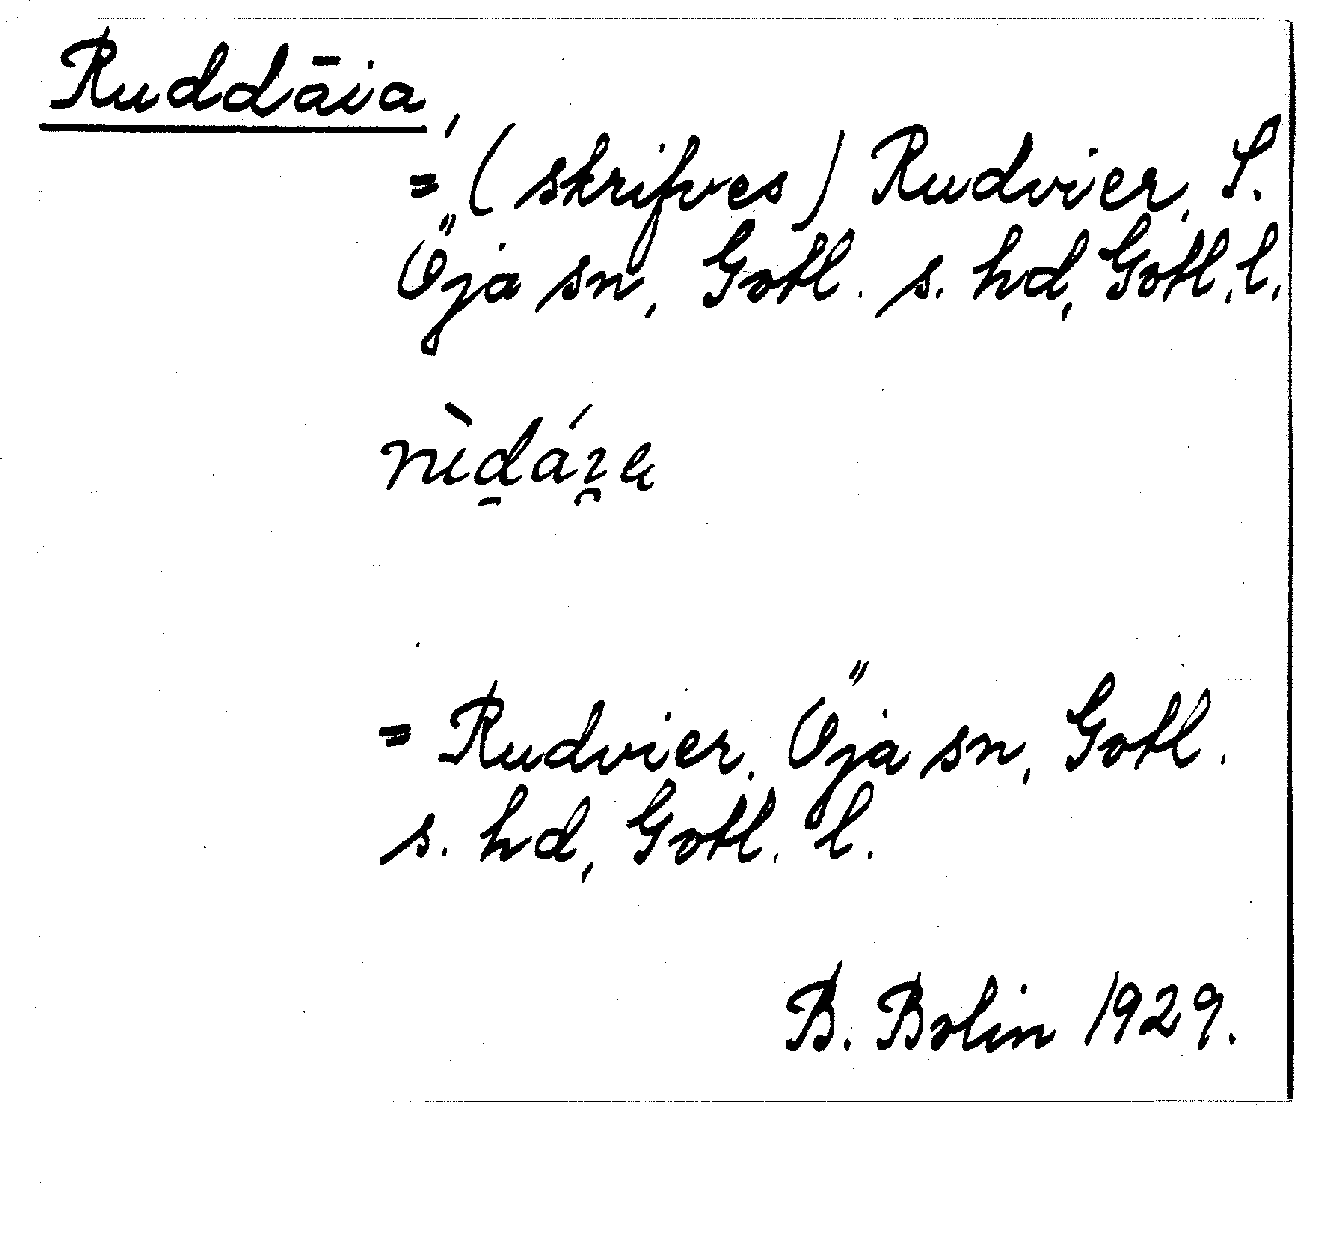 Ruddāia,
= (skrifves) Rudvier, S.
Öja sn, Gotl. s. hd, Gotl. l.
= Rudvier, Öja sn, Gotl.
s. hd, Gotl. l.
B. Bolin 1929.